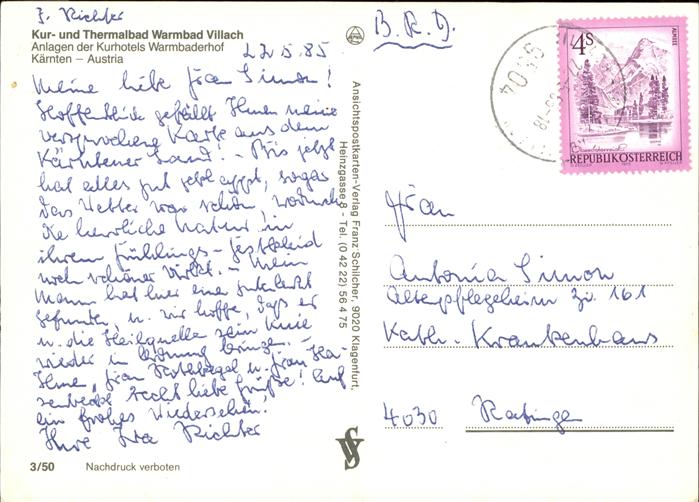 J. Richter
Kur- und Thermalbad Warmbad Villach
Anlagen der Kurhotels Warmbaderhof
Kärnten – Austria
22.5.85
Meine liebe Frau Simon!
Hoffentlich gefällt Ihnen meine
versprochene Karte aus dem
Kärntner Land. – Bis jetzt
hat alles gut geklappt, sogar
das Wetter war schön, wodurch
die herrliche Natur in
ihrem Frühlings-Festkleid
noch schöner wirkt. – Mein
Mann hat hier eine
gefunden, u. wir hoffe, daß er
u. die Heilquelle sein Knie
wieder in Ordnung bringen. –
Ihnen, Frau u. Frau
recht liebe Grüße! Auf
ein frohes Wiedersehen.
Ihre Richter
3/50 Nachdruck verboten
Ansichtspostkarten-Verlag Franz Schilcher, 9020 Klagenfurt,
Heinzgasse 8 - Tel. (0 42 22) 56 4 75
B.R.D.
4S
ALMSEE
REPUBLIK ÖSTERREICH
Frau
Antonia Simon
Altenpflegeheim Zi. 161
Kath. Krankenhaus
4030 Ratingen